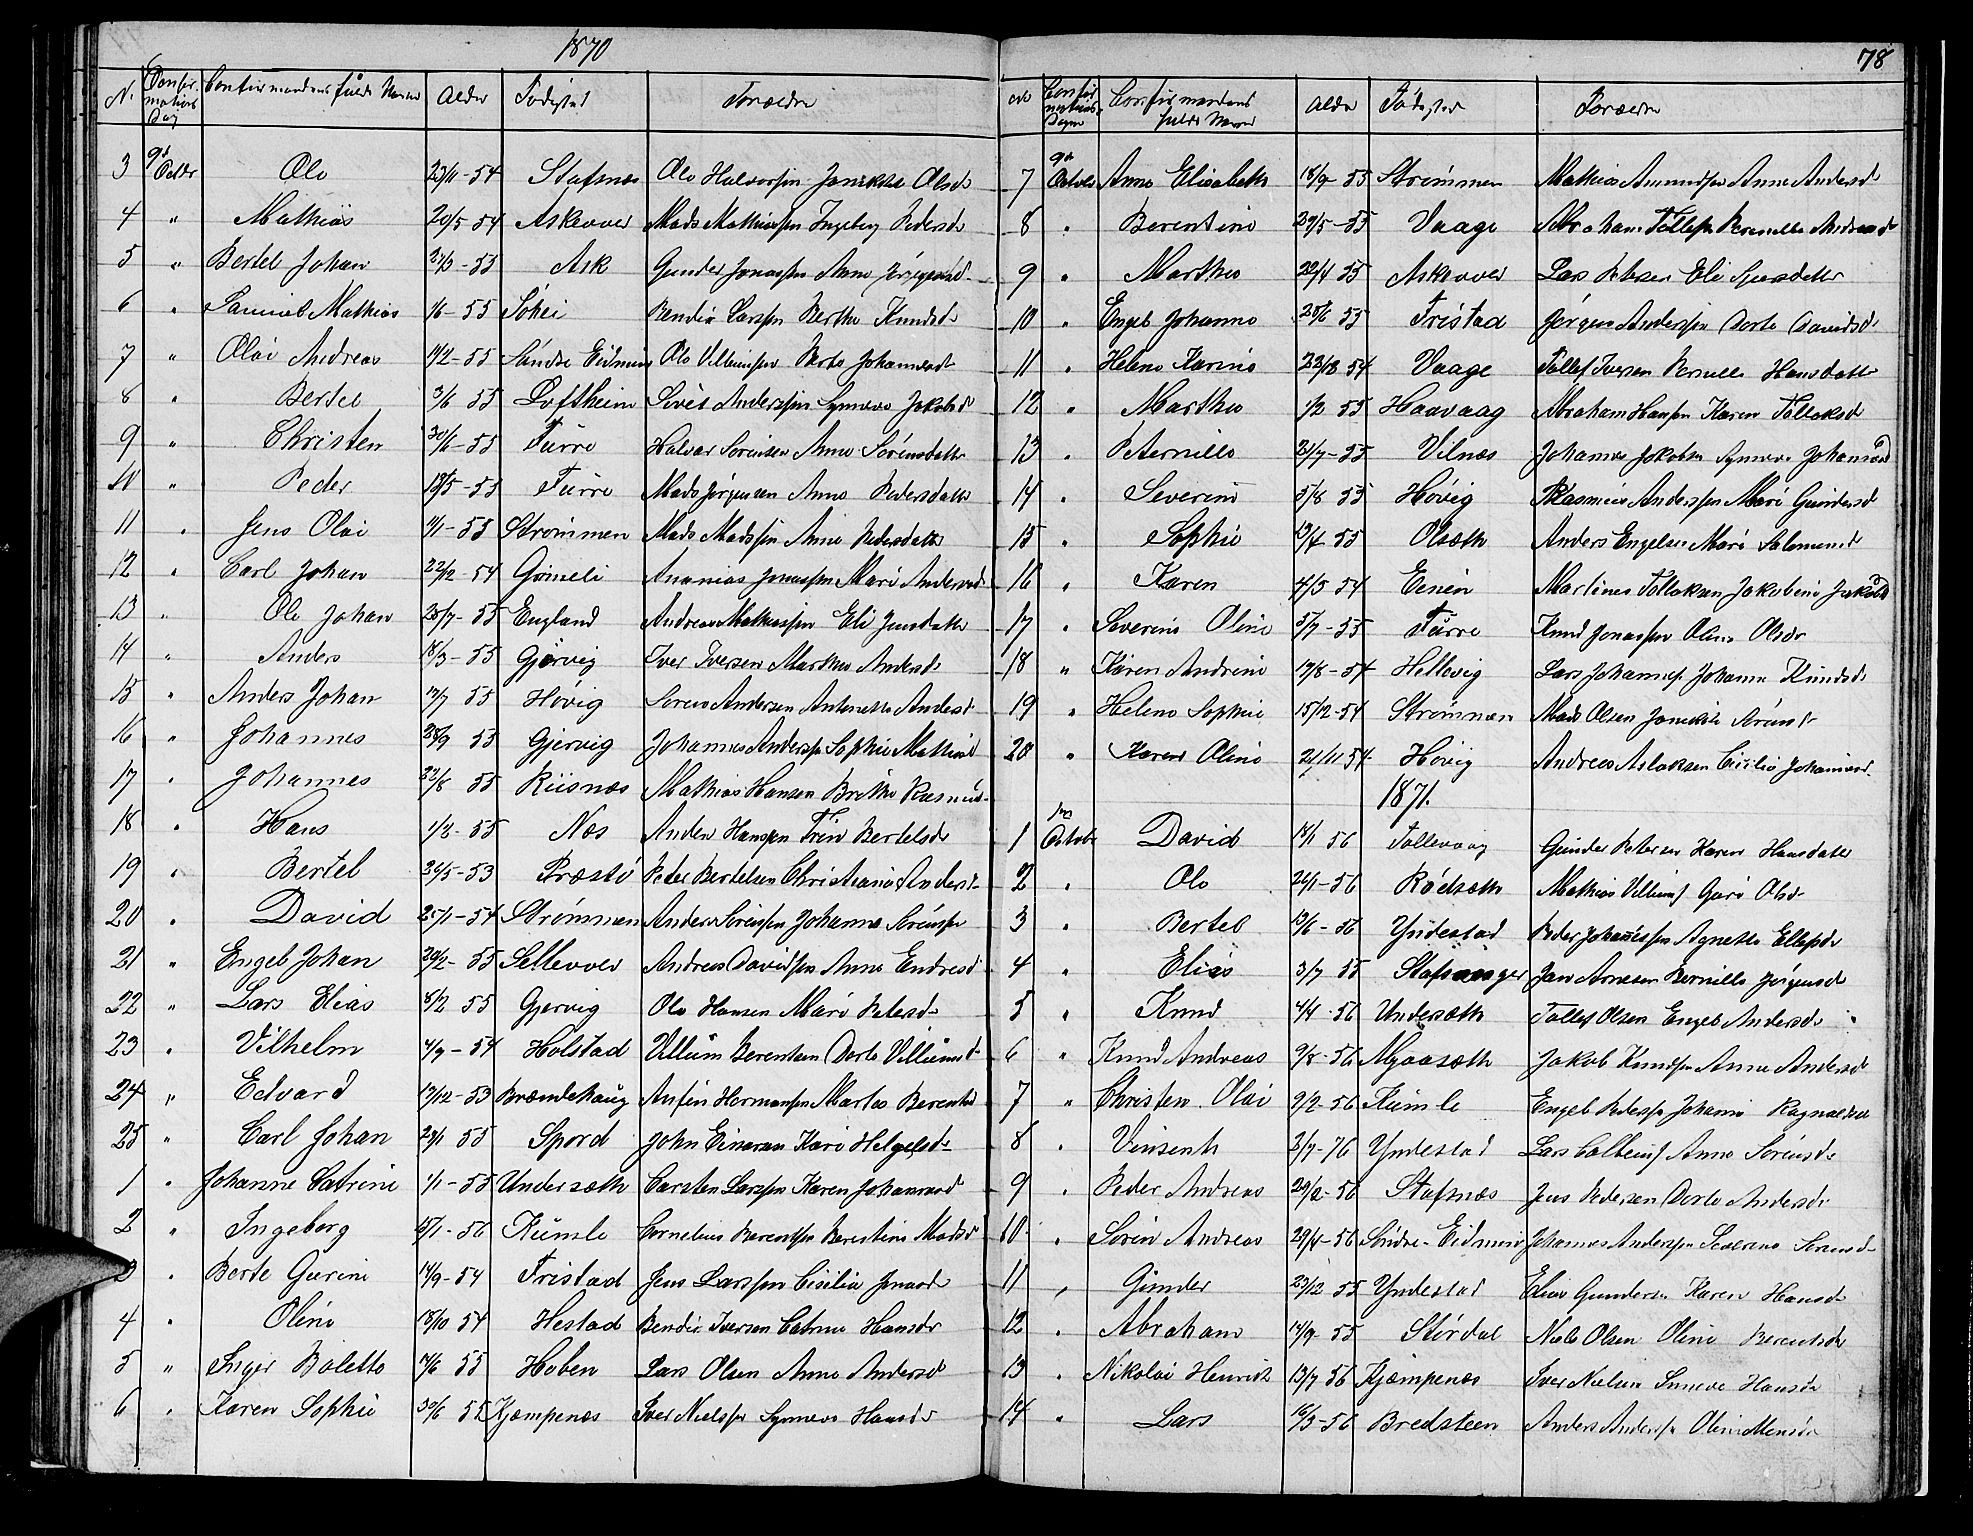 1870
N. Confir- mations Dag Confirmandens fulde Navn Alder Fødested Forældre
3 9de Octbr Ole 23/11-54 Stafsnes Ole Halvorsen Olsd
4 " Mathias 20/5 54 Askevver Mads Mathiassen Ingeborg Pedersd
5 " Bertel Johan 53 Ask Gunder Jonassen Anne
6 " Mathias 1/6-55 Bendix Larssen Berthe Knudsd
7 " Olai Andreas 1/2-55 Ole Berte Johannesd
8 " Bertel 3/6 55 Loftheim Anderssen Synneve Jakobsd
9 " Christen 30/6-55 Furre Halvor Sørensen Anne Sørensdatter
10 " Peder 18/5-55 Furre Mads Jørgensen Anne Pedersdatter
11 " Jens Olai 1/1-55 Strømmen Mads Madssen Anne Pedersdatter
12 " Carl Johan 22/12-54 Grimeli Ananias Jonassen Mari Andersd
13 " Ole Johan 25/7-55 England Andreas Mathiassen Eli Jensdatter
14 " Anders 18/3-55 Gjervig Iver Iversen Marthe Andersd
15 " Anders Johan 55 Høvig Søren Andersen Antonette Andersd
16 " Johannes Gjervig Johannes Anderssen Sophie Mathiasd
17 " Johannes 55 Riisnæs Mathias Hansen Brethe Rasmusd
18 " Hans 1/2-55 Næs Hanssen Bertelsd
19 " Bertel 24/5-53 Præstø Peder Bertelsen Christiane Andersd
20 " David 25/1-54 Strømmen Anders Sørenssen Johanne
21 " Engel Johan 20/2-55 Sellevver Andreas Davidssen Anne Endresd
22 " Lars Elias 8/2 55 Gjervig Ole Hansen Mari Petersd
23 " Vilhelm 4/9-54 Holstad Villum Berentsen Dorte Villumsd
24 " Edvard 53 Brændehaug Anfin Hermanssen Martha Berentsd
25 " Carl Johan 23/1 55 Spord John Einarsen Kari Helgesd
1 " Johanne Catrine 1/1-55 Undersæth Carsten Larssen Karen Johannesd
2 " Ingeborg Kumle Cornelius Berentsen Berentine Madsd
3 " Berte Gurine 14/9-54 Fristad Jens Larssen Cicilia Jonasd
4 " Oline 18/10 54 Hestad Bendix Iversen Catrine Hansdr
5 " Inger Bolette 7/6 55 Hoben Lars Olsen Anne Andersd
6 " Karen Sophie 30/6 55 Kjæmpenæs Iver Nielssen Synneve Hansdr
78
No Confirmations Dagen Confirmandens fulde Navn Alder Fødested Forældre
7 9de October Anne Elisabeth 18/9-55 Strømmen Mathias Amundsen Anne Andersd
8 " Berentine 29/5-55 Vaage Abraham Tollefsen Pernille
9 " Marthe 22/4 55 Askevver Lars Petersen Eli
10 " Engel Johanne 25/6 55 Fristad Jørgen Anderssen Dorte Davidsd
11 " Helene Karine 54 Vaage Tollef Iversen Pernille Hansdatter
12 " Marthe 1/2 55 Haavaag Abraham Hanssen Karen Tollaksd
13 " Peternille 21/7-55 Vilnæs Johannes Jakobsen Synneve Johannesd
14 " Severine 5/8 55 Høvig Rasmus Anderssen Mari Gundersd
15 " Sophie 55 Olsæth Anders Engelsen Mari Salomonsd
16 " Karen 4/5 54 Martines Tollaksen Jakobine Jakobsd
17 " Severine Oline 5/7-55 Furre Knud Jonassen Oline Olsdr
18 " Karen Andrine 54 Hellevig Lars Johannes Johanne Knudsd
19 " Helene Sophie 15/12-54 Strømmen Mads Olsen
20 " Karen Oline 21/11 54 Høvig Andreas Aslaksen Cicilie Johannesd
1871.
1 1ste October David 18/1 56 Tollevaag Gunder Petersen Karen Hansdatter
2 " Ole 24/1-56 Rødsæth Mathias Guri Olsdr
3 " Bertel 13/6-56 Yndestad Peder Johannessen Agnethe
4 " Elias 3/7 55 Stafvanger Jan Arnesen Pernille Jørgensd
5 " Knud 4/4-56 Undersæth Tollef Olsen Engel Andersdr
6 " Knud Andreas 9/8-56 Myaasæth Jakob Knudsen Anne Andersd
7 " Christen Olai 9/2-56 Kumle Engel Pederssen Johanne Ragnald
8 " Vinsents 2/7-76 Yndestad Lars Anne Sørensdr
9 " Peder Andreas 29/2-56 Stafnæs Jens Pedersen Dorte Andersdr
10 " Søren Andreas 29/4-56 Søndre Johannes Anderssen Severine Sørensd
11 " Gunder 23/12 55 Yndestad Elias Gundersen Karen Hansd
12 " Abraham 14/9-55 Størdal Niels Olsen Oline Berentsd
13 " Nikolai Henrik 13/7 56 Kjæmpenæs Iver Nielsen Hansdr
14 " Lars 16/3-56 Bredsteen Anders Anderssen Oline